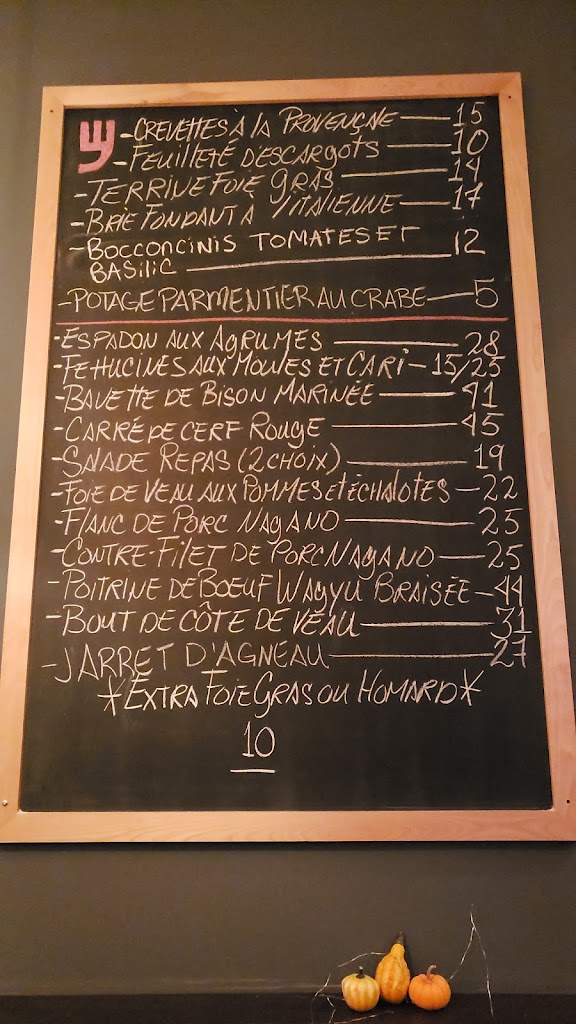 -CREVETTES À LA PROVENÇALE — 15
-FEUILLETÉ D'ESCARGOTS — 10
-TERRINE FOIE GRAS — 14
-BRIE FONDANT À L'ITALIENNE — 17
-BOCCONCINIS TOMATES ET
BASILIC — 12
-POTAGE PARMENTIER AU CRABE — 5
-ESPADON AUX AGRUMES — 28
-FETTUCINES AUX MOULES ET CARI — 15/25
-BAVETTE DE BISON MARINÉE — 41
-CARRÉ DE CERF ROUGE — 45
-SALADE REPAS (2 CHOIX) — 19
-FOIE DE VEAU AUX POMMES ET ÉCHALOTES — 22
-FLANC DE PORC NAGANO — 25
-CONTRE-FILET DE PORC NAGANO — 25
-POITRINE DE BOEUF WAGYU BRAISÉE — 44
-BOUT DE CÔTE DE VEAU — 31
-JARRET D'AGNEAU — 27
*EXTRA FOIE GRAS OU HOMARD*
10